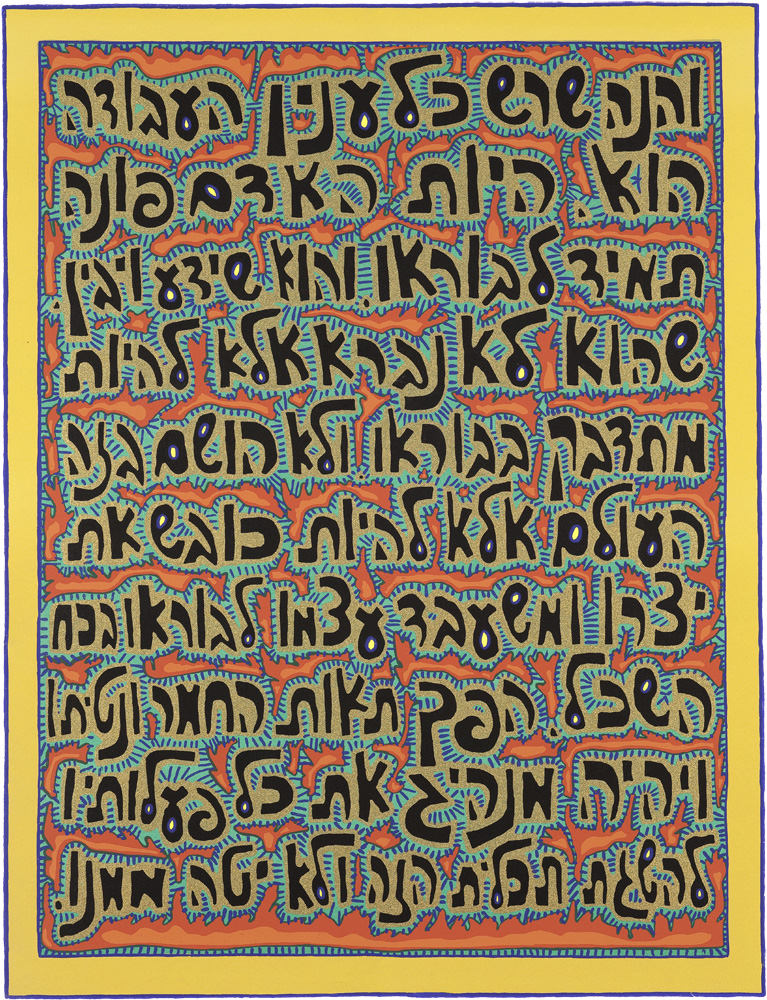 והנה שרש כל ענין העבודה
הוא היות האדם פונה
תמיד לבוראו. והוא שידע ויבין.
שהוא לא נברא אלא להיות
מתדבק בבוראו. ולא הושם בזה
העולם אלא להיות כובש את
יצרו ומשעבד עצמו לבוראו בכח
השכל. הפך תאות החמר ונטיתו
ויהיה מנהיג את כל פעלותיו
להשגת תכלית הזה ולא יטה ממנו.